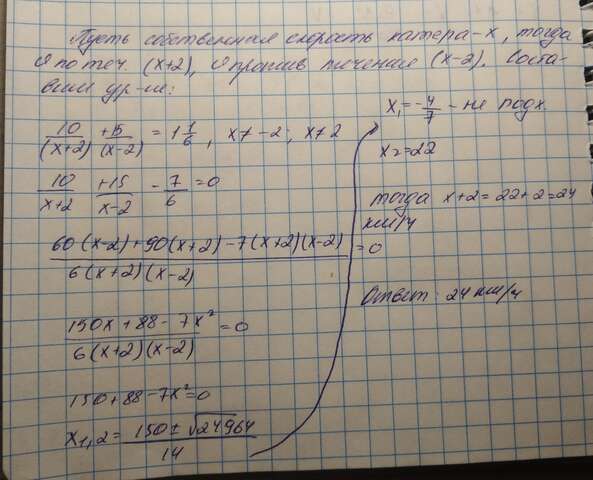 Пусть собственная скорость катера - x, тогда
v по теч. (x+2), v против течения (x-2). Соста-
вим ур-ие:
10/(x+2) + 15/(x-2) = 1 1/6, x≠-2; x≠2
10/x+2 + 15/x-2 - 7/6 = 0
60(x-2)+90(x+2)-7(x+2)(x-2)/6(x+2)(x-2) = 0
150x+88-7x²/6(x+2)(x-2) = 0
150+88-7x²=0
x1,2 = 150±√24964/14
x1 = -4/7 - не подх.
x2=22
тогда x+2=22+2=24
км/ч
Ответ: 24 км/ч